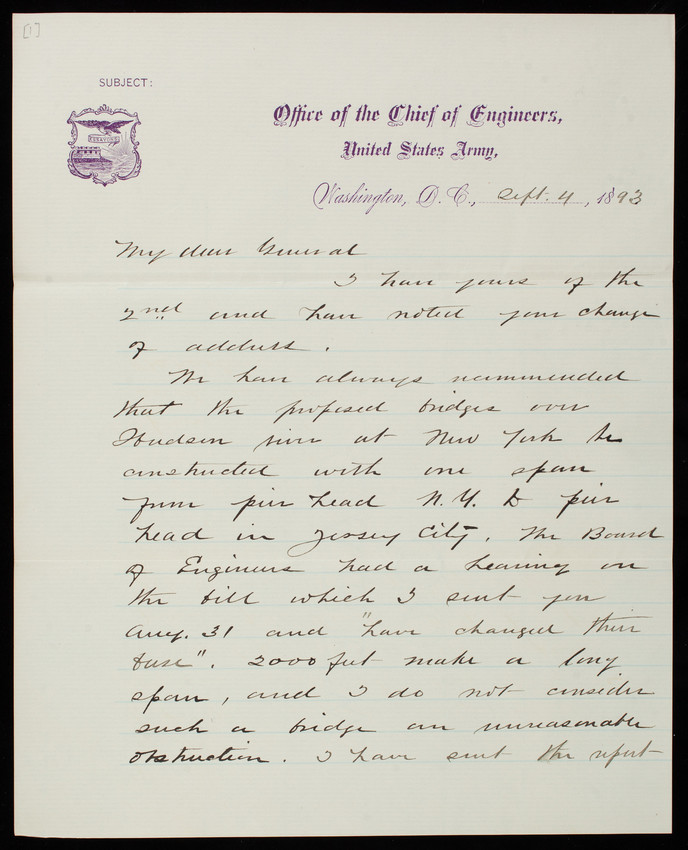 [1]
SUBJECT:
ESSAYONS
Office of the Chief of Engineers,
United States Army,
Washington, D. C., Sept. 4, 1893
My dear General
I have yours of the
2nd and have noted your change
of address.
We have always recommended
that the proposed bridges over
Hudson river at New York be
constructed with one span
from pier head N.Y. to pier
head in Jersey City. The Board
of Engineers had a hearing on
the bill which I sent you
Aug. 31 and "have changed their
base". 2000 feet make a long
span, and I do not consider
such a bridge an unreasonable
obstruction. I have sent the report